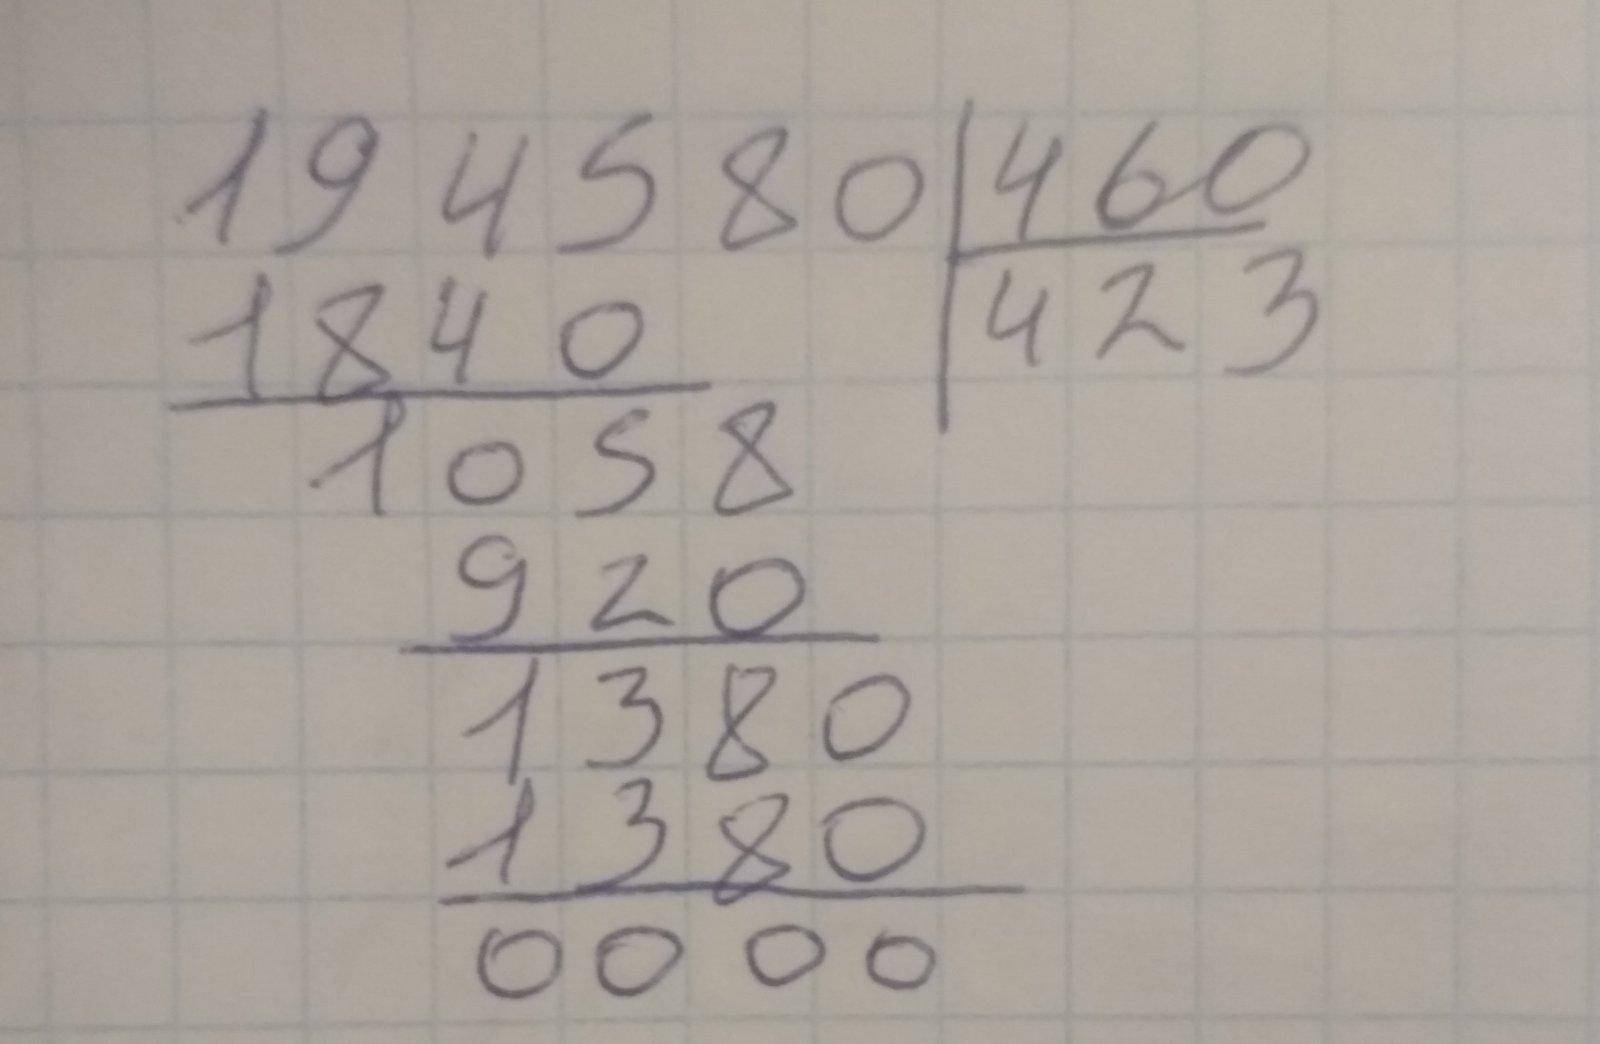 194580 460
1840 423
1058
920
1380
1380
0000